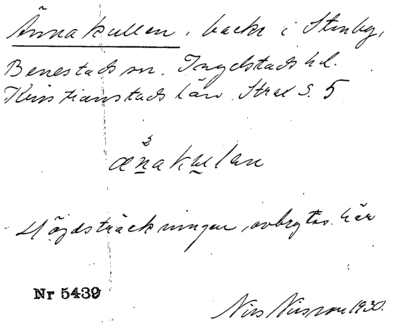 Ännakullen, backe i Stenby,
Benestads sn. Ingelstads hd.
Kristianstads län. Strax S. 5
änakulan
Höjdsträckningen, avbrytes här
Nr 5439
Nils Nilsson 1930.